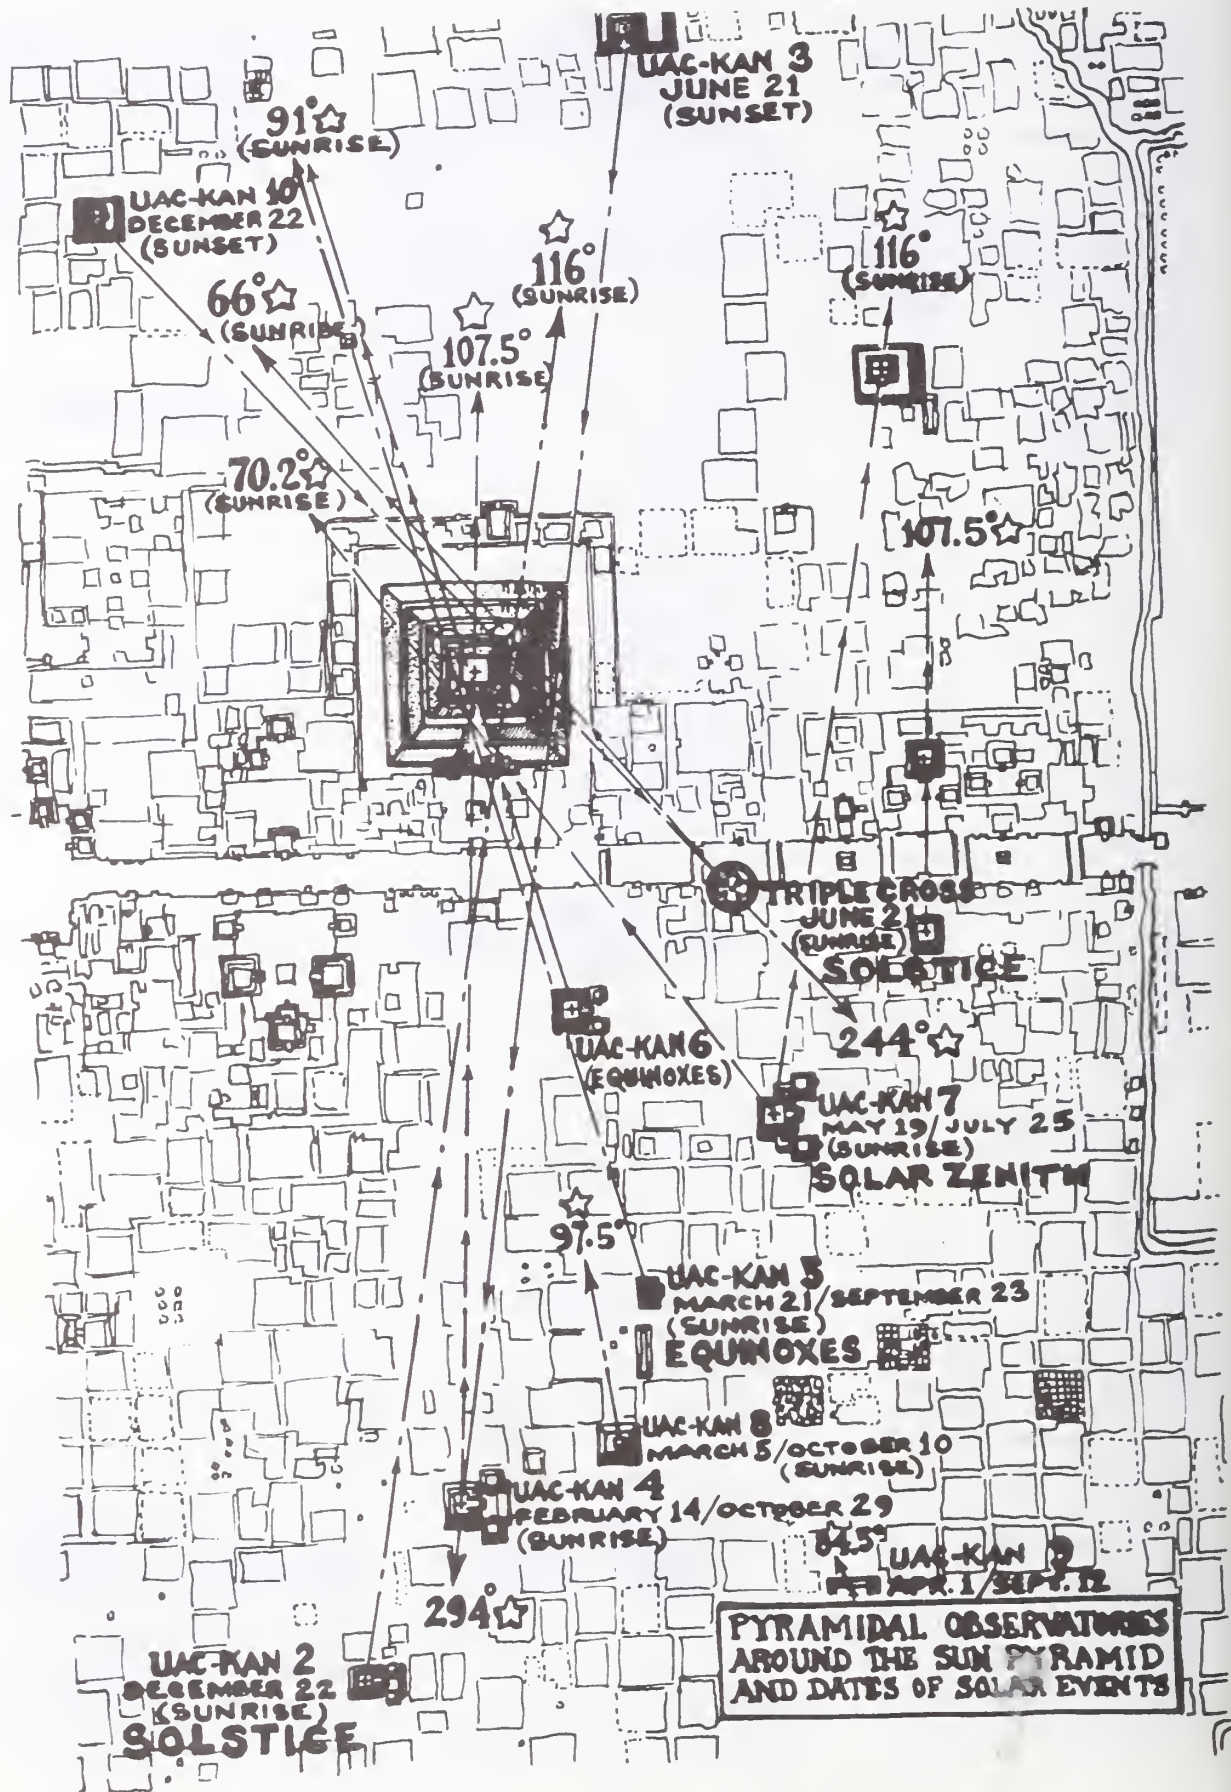 UAC-KAN 3
JUNE 21
(SUNSET)
91°
(SUNRISE)
UAC-KAN 10
DECEMBER 22
(SUNSET)
116°
(SUNRISE)
116°
(SUNRISE)
66°
(SUNRISE)
107.5°
(SUNRISE)
70.2°
(SUNRISE)
107.5°
TRIPLE CROSS
JUNE 21
(SUNRISE)
SOLSTICE
244°
UAC-KAN 6
(EQUINOXES)
UAC-KAN 7
MAY 19/JULY 25
(SUNRISE)
SOLAR ZENITH
97.5°
UAC-KAN 5
MARCH 21/SEPTEMBER 23
(SUNRISE)
EQUINOXES
UAC-KAN 8
MARCH 5/OCTOBER 10
(SUNRISE)
UAC-KAN 4
FEBRUARY 14/OCTOBER 29
(SUNRISE)
84.5°
UAC-KAN 9
APR. 1/SEPT. 12
294°
UAC-KAN 2
DECEMBER 22
(SUNRISE)
SOLSTICE
PYRAMIDAL OBSERVATORIES
AROUND THE SUN PYRAMID
AND DATES OF SOLAR EVENTS